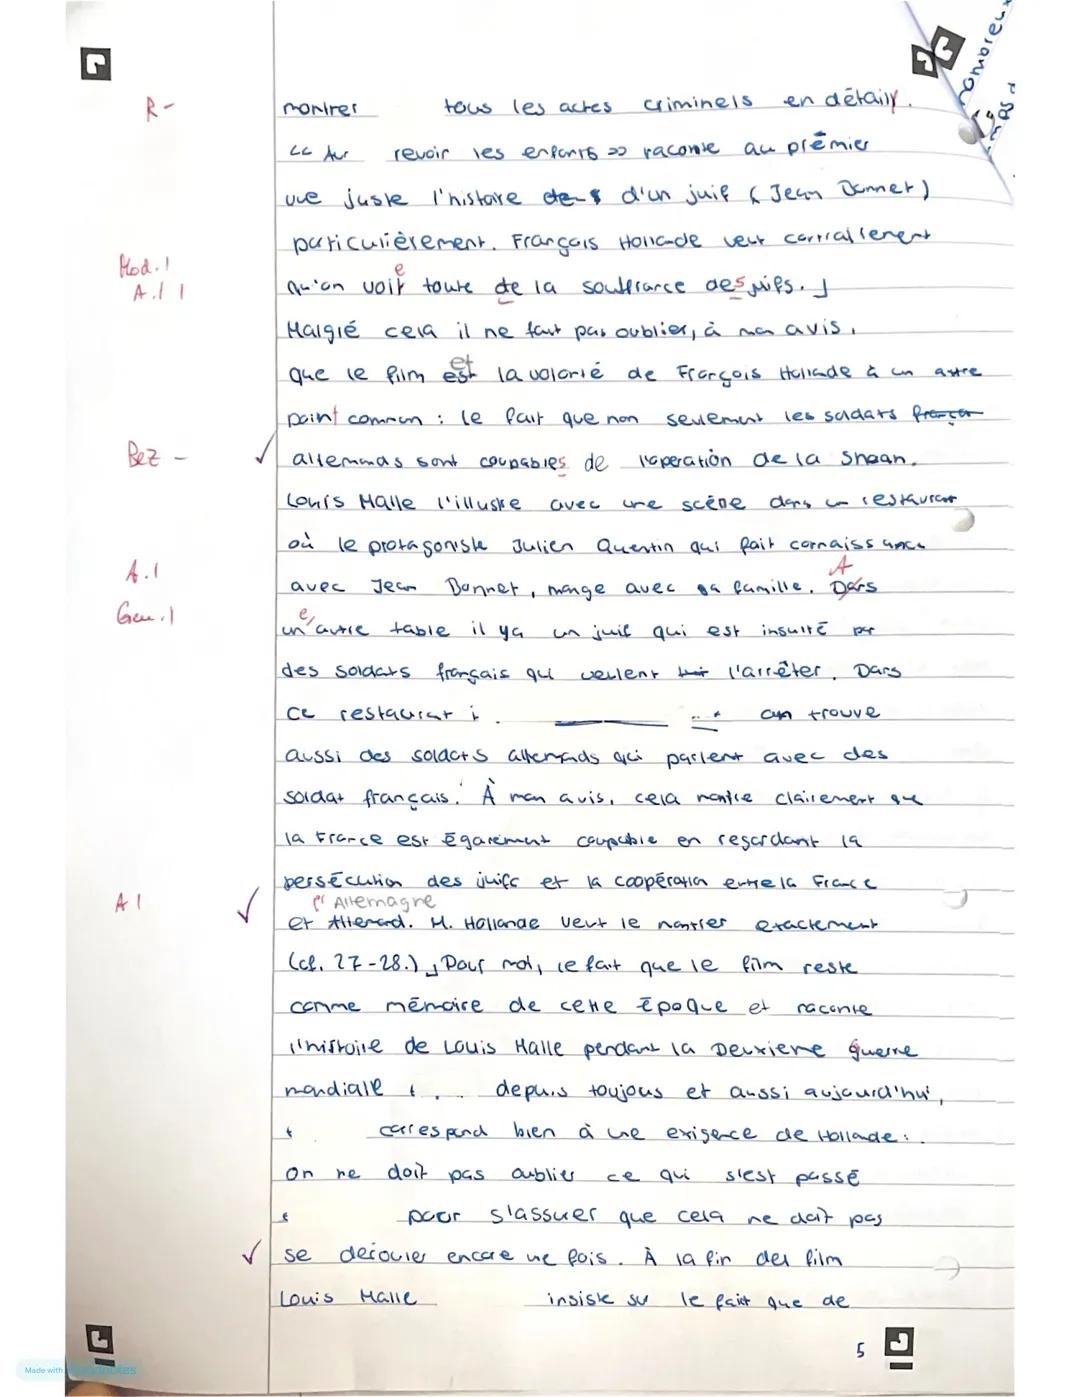 nombreux
R-
montrer tous les actes criminels en détaily.
<< Au revoir les enfants >> raconte au prémier
vue juste l'histoire d'un juif (Jean Bonnet)
particulièrement. François Hollande veut carrallement
Mod. I
A. I I
e
qu'on voit toute de la souffrance des juifs. ⌋
Malgré cela il ne faut pas oublier, à mon avis,
et
que le film est la volonté de François Hollande à un autre
point commun : le fait que non seulement les soldats françai
Bez - ✓
allemands sont coupables de l'opération de la Shoan.
Louis Malle l'illustre avec une scène dans un restaurant
où le protagoniste Julien Quentin qui fait connaissance
A. I
A
avec Jean Bonnet, mange avec sa famille. Dans
Gen. I
e
un autre table il ya un juif qui est insulté par
des soldats français qui veulent l'arrêter. Dans
ce restaurant on trouve
aussi des soldats allemands qui parlent avec des
soldat français. À mon avis, cela montre clairement que
la France est également coupable en regardant la
persécution des juifs et la coopération entre la France
A I ✓
l'Allemagne
et Allemand. M. Hollande veut le montrer exactement
(cf. 27-28.) ⌋ Pour moi, le fait que le film reste
comme mémoire de cette époque et raconte
l'histoire de Louis Malle pendant la Deuxième guerre
mondiale depuis toujous et aussi aujourd'hui,
correspond bien à une exigence de Hollande :
On ne doit pas oublier ce qui s'est passé
pour s'assuer que cela ne doit pas
✓ se dérouler encore une fois. À la fin del film
Louis Malle insiste su le fait que de
5
Made with